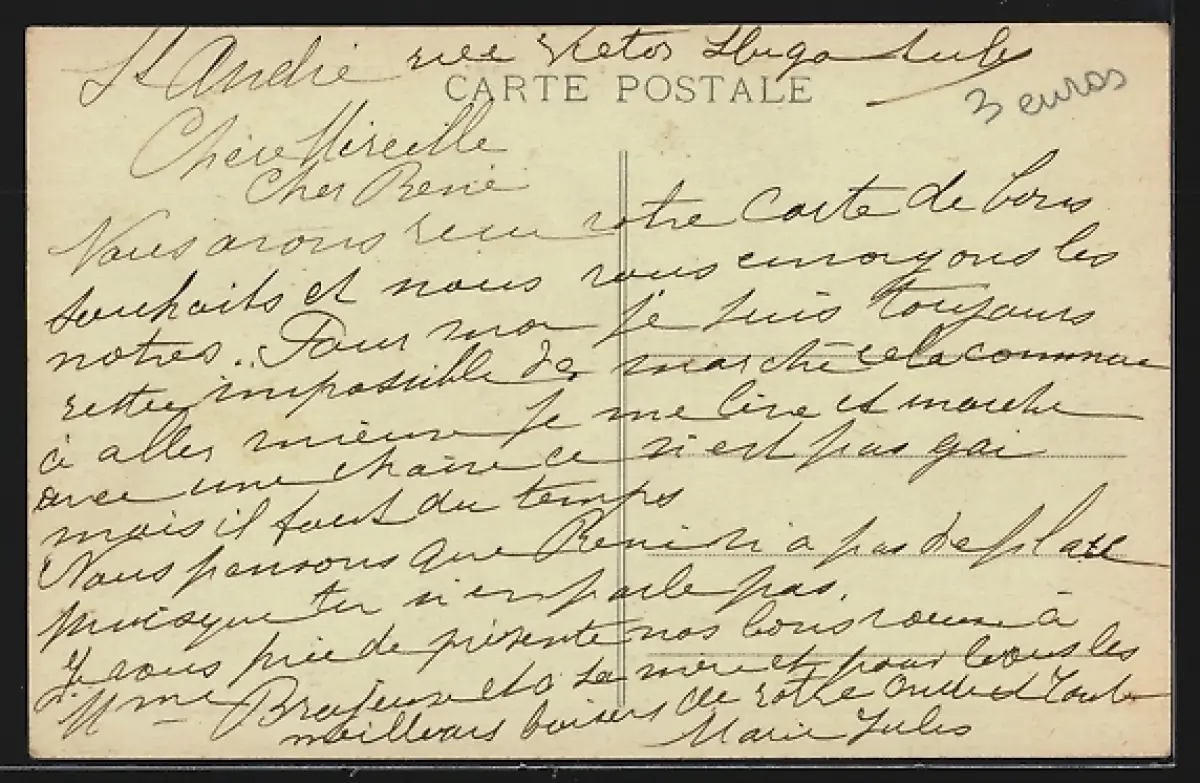 St André rue Victor Hugo Aube
CARTE POSTALE
3 euros
Chère Mireille
Cher René
Nous avons recu votre carte de bons
souhaits et nous vous envoyons les
notres.. Pour moi je suis toujours
impossible de marché cela commence
à aller mieux je me lève et marche
avec une chaise ce n'est pas gai
mais il faut du temps
Nous pensons que René n'a pas de place
puisque tu n'en parle pas.
Je vous prie de présenté nos bons voeux à
Mme et a sa mère et pour vous les
meilleurs baisers de votre Oncle et Tante
Marie Jules